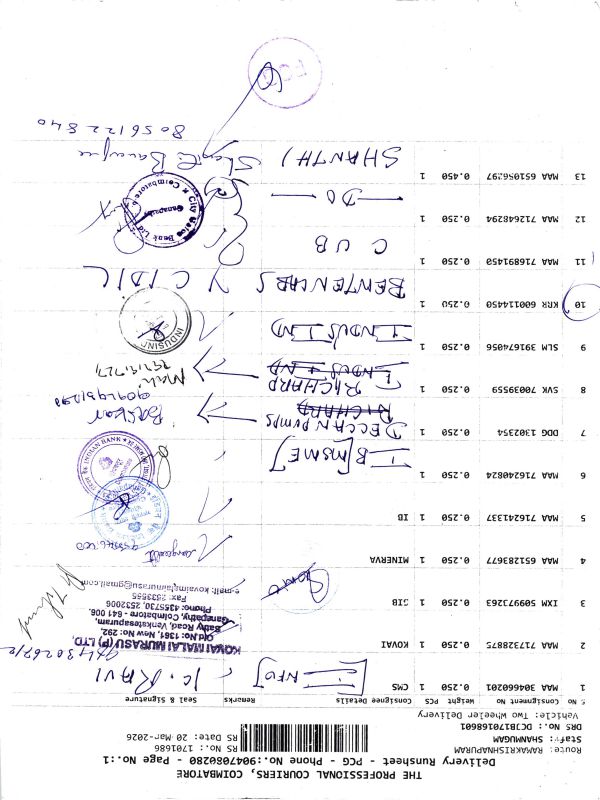 THE PROFESSIONAL COURIERS, COIMBATORE
Delivery Runsheet - PCG - Phone No.:9047080280 - Page No.:1
Route: RAMAKRISHNAPURAM
Staff: SHANMUGAM
DRS No.: DCJB170168601
Vehicle: Two Wheeler Delivery
RS No.: 1701686
RS Date: 20-Mar-2026
S No Consignment No Weight PCS Consignee Details Remarks Seal & Signature
1 MAA 304660201 0.250 1 CMS [INFO] K. RAVI
2 MAA 717328875 0.250 1 KOVAI
KOVAI MALAI MURASU (P) LTD,
Old No:1381, New No: 292,
Bathy Road, Venkatesapuram,
Ganapathy, Coimbatore - 641 006.
Phone: 4355730, 2532006
Fax: 2533595
e-mail: kovaimalaimurasu@gmail.com
3 IXM 509973263 0.250 1 SIB
4 MAA 651283677 0.250 1 MINERVA
5 MAA 716241337 0.250 1 IB
6 MAA 716240824 0.250 1 IB [MSME]
INDIAN BANK
7 DDG 1302354 0.250 1 DECCAN PUMPS Baskar
8 SVK 70039559 0.250 1 RICHARD Mali
9 SLM 391674056 0.250 1 INDUS IND
INDUSIND
10 KRR 600114450 0.250 1
11 MAA 716891450 0.250 1 CUB
12 MAA 712648294 0.250 1 — DO —
City Union Bank Ltd
Ganapathy
Coimbatore
13 MAA 651056297 0.450 1 SHANTHI
8056122840
PCG